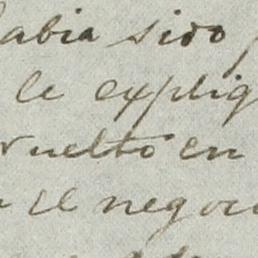 habia sido
le expliq
vuelto en
el negoci